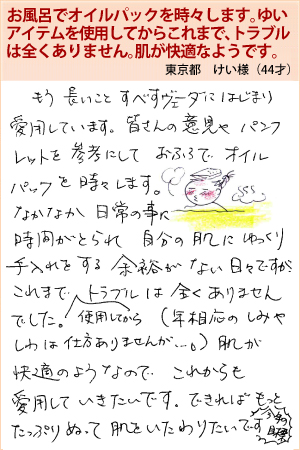 お風呂でオイルパックを時々します。ゆい
アイテムを使用してからこれまで、トラブル
は全くありません。肌が快適なようです。
東京都 けい様（44才）
もう 長いこと すべすヴェーダに はじまり
愛用しています。皆さんの意見や パンフ
レットを 参考にして おふろで オイル
パックを 時々します。
なかなか 日常の事に
時間がとられ 自分の肌に ゆっくり
手入れを する 余裕が ない 日々ですが
これまで トラブル は 全く ありません
でした。使用してから （年相応の しみや
しわは 仕方ありませんが…。）肌が
快適のようなので これからも
愛用して いきたいです。できれば もっと
たっぷり ぬって 肌を いたわりたいです
今年の
目標